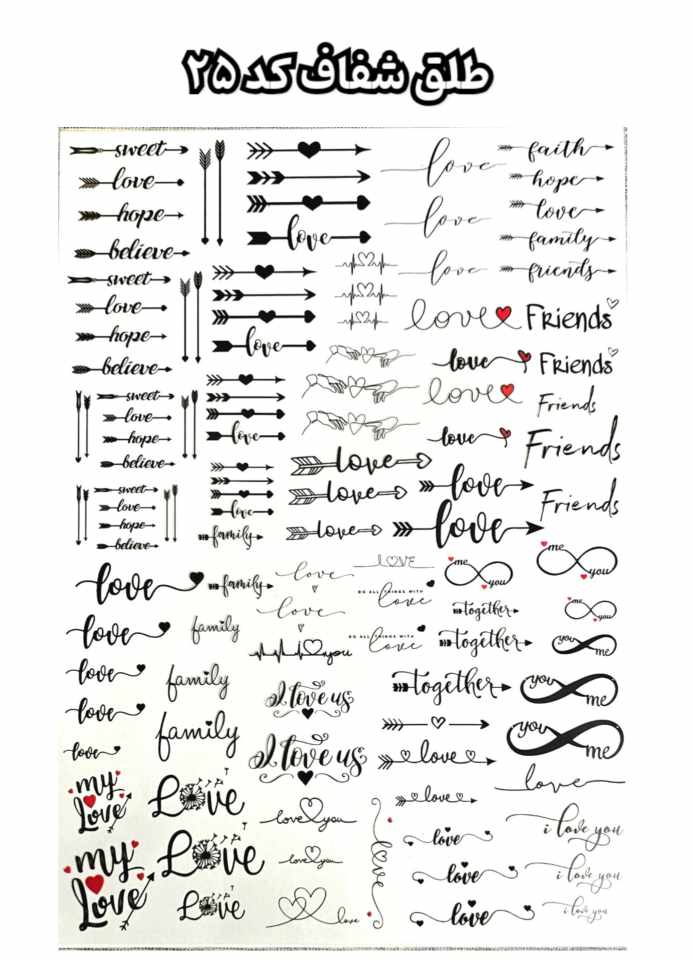 طلق شفاف کد ۲۵
sweet
love
hope
believe
love
love
love
love
faith
hope
love
family
friends
sweet
love
hope
believe
love
love
Friends
love
Friends
love
Friends
love
Friends
Friends
sweet
love
hope
believe
love
love
love
love
love
love
sweet
love
hope
believe
love
family
love
family
love
love
LOVE
DO ALL THINGS WITH
love
me
you
me
you
together
me
you
love
family
you
DO ALL THINGS WITH
love
together
you
me
love
family
I love us
together
you
me
love
family
I love us
love
you
me
love
my
Love
Love
love you
love
love
love
i love you
my
Love
Love
love you
love
love
i love you
Love
love
love
i love you